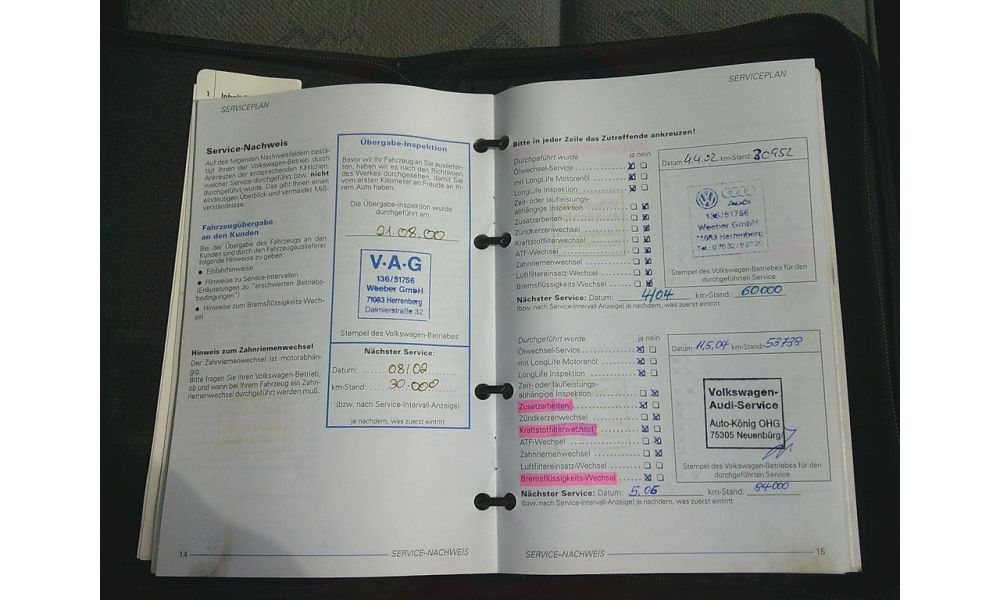 SERVICEPLAN
Service-Nachweis
Auf den folgenden Nachweisfeldern bestä-
tigt Ihnen der Volkswagen-Betrieb durch
Ankreuzen der entsprechenden Kästchen,
welcher Service durchgeführt bzw. nicht
durchgeführt wurde. Das gibt Ihnen einen
eindeutigen Überblick und vermeidet Miß-
verständnisse.
Fahrzeugübergabe
an den Kunden
Bei der Übergabe des Fahrzeugs an den
Kunden sind durch den Fahrzeugauslieferer
folgende Hinweise zu geben:
• Einfahrhinweise
• Hinweise zu Service-Intervallen
(Erläuterungen zu "erschwerten Betriebs-
bedingungen")
• Hinweise zum Bremsflüssigkeits-Wech-
sel
Hinweis zum Zahnriemenwechsel
Der Zahnriemenwechsel ist motorabhän-
gig.
Bitte fragen Sie Ihren Volkswagen-Betrieb,
ob und wann bei Ihrem Fahrzeug ein Zahn-
riemenwechsel durchgeführt werden muß.
Übergabe-Inspektion
Bevor wir Ihr Fahrzeug an Sie ausliefer-
ten, haben wir es nach den Richtlinien
des Werkes durchgesehen, damit Sie
vom ersten Kilometer an Freude an Ih-
rem Auto haben.
Die Übergabe-Inspektion wurde
durchgeführt am
21.08.00
V·A·G
136/51756
Weeber GmbH
71083 Herrenberg
Daimlerstraße 32
Stempel des Volkswagen-Betriebes
Nächster Service:
Datum: 08/02
km-Stand: 30.000
(bzw. nach Service-Intervall-Anzeige)
je nachdem, was zuerst eintritt
14 SERVICE–NACHWEIS
SERVICEPLAN
Bitte in jeder Zeile das Zutreffende ankreuzen!
Durchgeführt wurde ja nein
Ölwechsel-Service
mit LongLife Motorenöl
LongLife Inspektion
Zeit- oder laufleistungs-
abhängige Inspektion
Zusatzarbeiten
Zündkerzenwechsel
Kraftstoffilterwechsel
ATF-Wechsel
Zahnriemenwechsel
Luftfiltereinsatz-Wechsel
Bremsflüssigkeits-Wechsel
Datum km-Stand: 30952
Audi
136/51756
Weeber GmbH
71083 Herrenberg
Stempel des Volkswagen-Betriebes für den
durchgeführten Service
Nächster Service: Datum: 4/04 km-Stand: 60000
(bzw. nach Service-Intervall-Anzeige) je nachdem, was zuerst eintritt
Durchgeführt wurde ja nein
Ölwechsel-Service
mit LongLife Motorenöl
LongLife Inspektion
Zeit- oder laufleistungs-
abhängige Inspektion
Zusatzarbeiten
Zündkerzenwechsel
Kraftstoffilterwechsel
ATF-Wechsel
Zahnriemenwechsel
Luftfiltereinsatz-Wechsel
Bremsflüssigkeits-Wechsel
Datum: 11.5.04 km-Stand: 53738
Volkswagen-
Audi-Service
Auto-König OHG
75305 Neuenbürg
Stempel des Volkswagen-Betriebes für den
durchgeführten Service
Nächster Service: Datum: 5.06 km-Stand:
(bzw. nach Service-Intervall-Anzeige) je nachdem, was zuerst eintritt
SERVICE–NACHWEIS 15